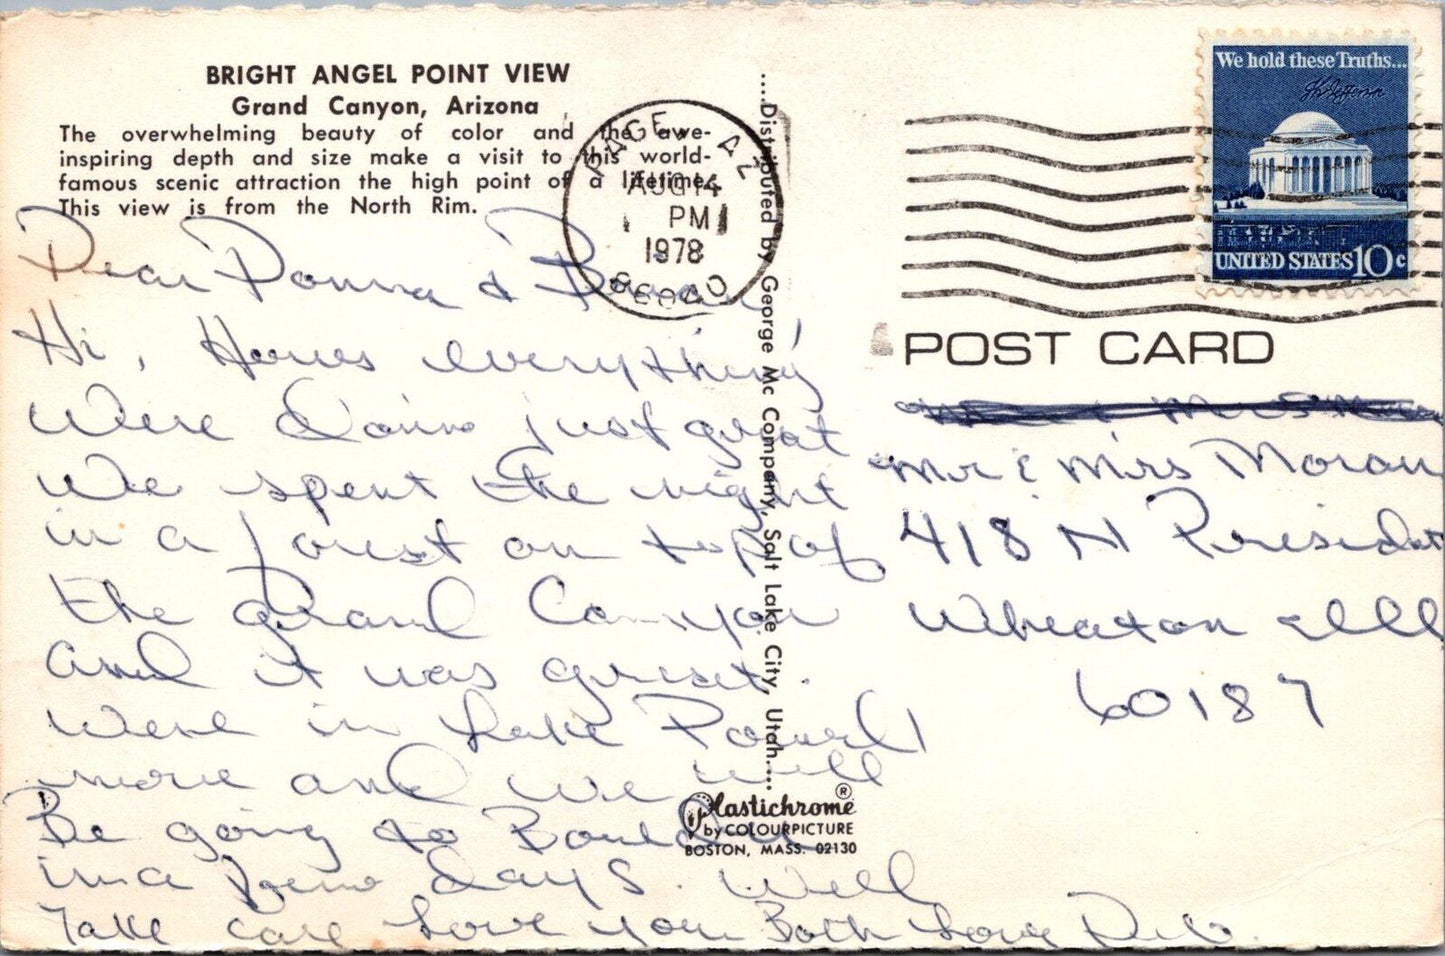 BRIGHT ANGEL POINT VIEW
Grand Canyon, Arizona
The overwhelming beauty of color and the awe-
inspiring depth and size make a visit to this world-
famous scenic attraction the high point of a lifetime.
This view is from the North Rim.
PAGE, AZ
AUG 14
PM
1978
86040
We hold these Truths...
Th Jefferson
UNITED STATES 10c
POST CARD
Dear Donna &
Hi, Hows everything
Were doing just great
We spent the night
in a forest on top of
the Grand Canyon
and it was great.
Were in Lake Powell
more and we will
Be going to Boulder
in a few days. Well
Take care Love you Both Love Deb.
Mr & Mrs Moran
418 N President
Wheaton Ill
60187
....Distributed by George Mc Company, Salt Lake City, Utah....
Plastichrome®
by COLOURPICTURE
BOSTON, MASS. 02130